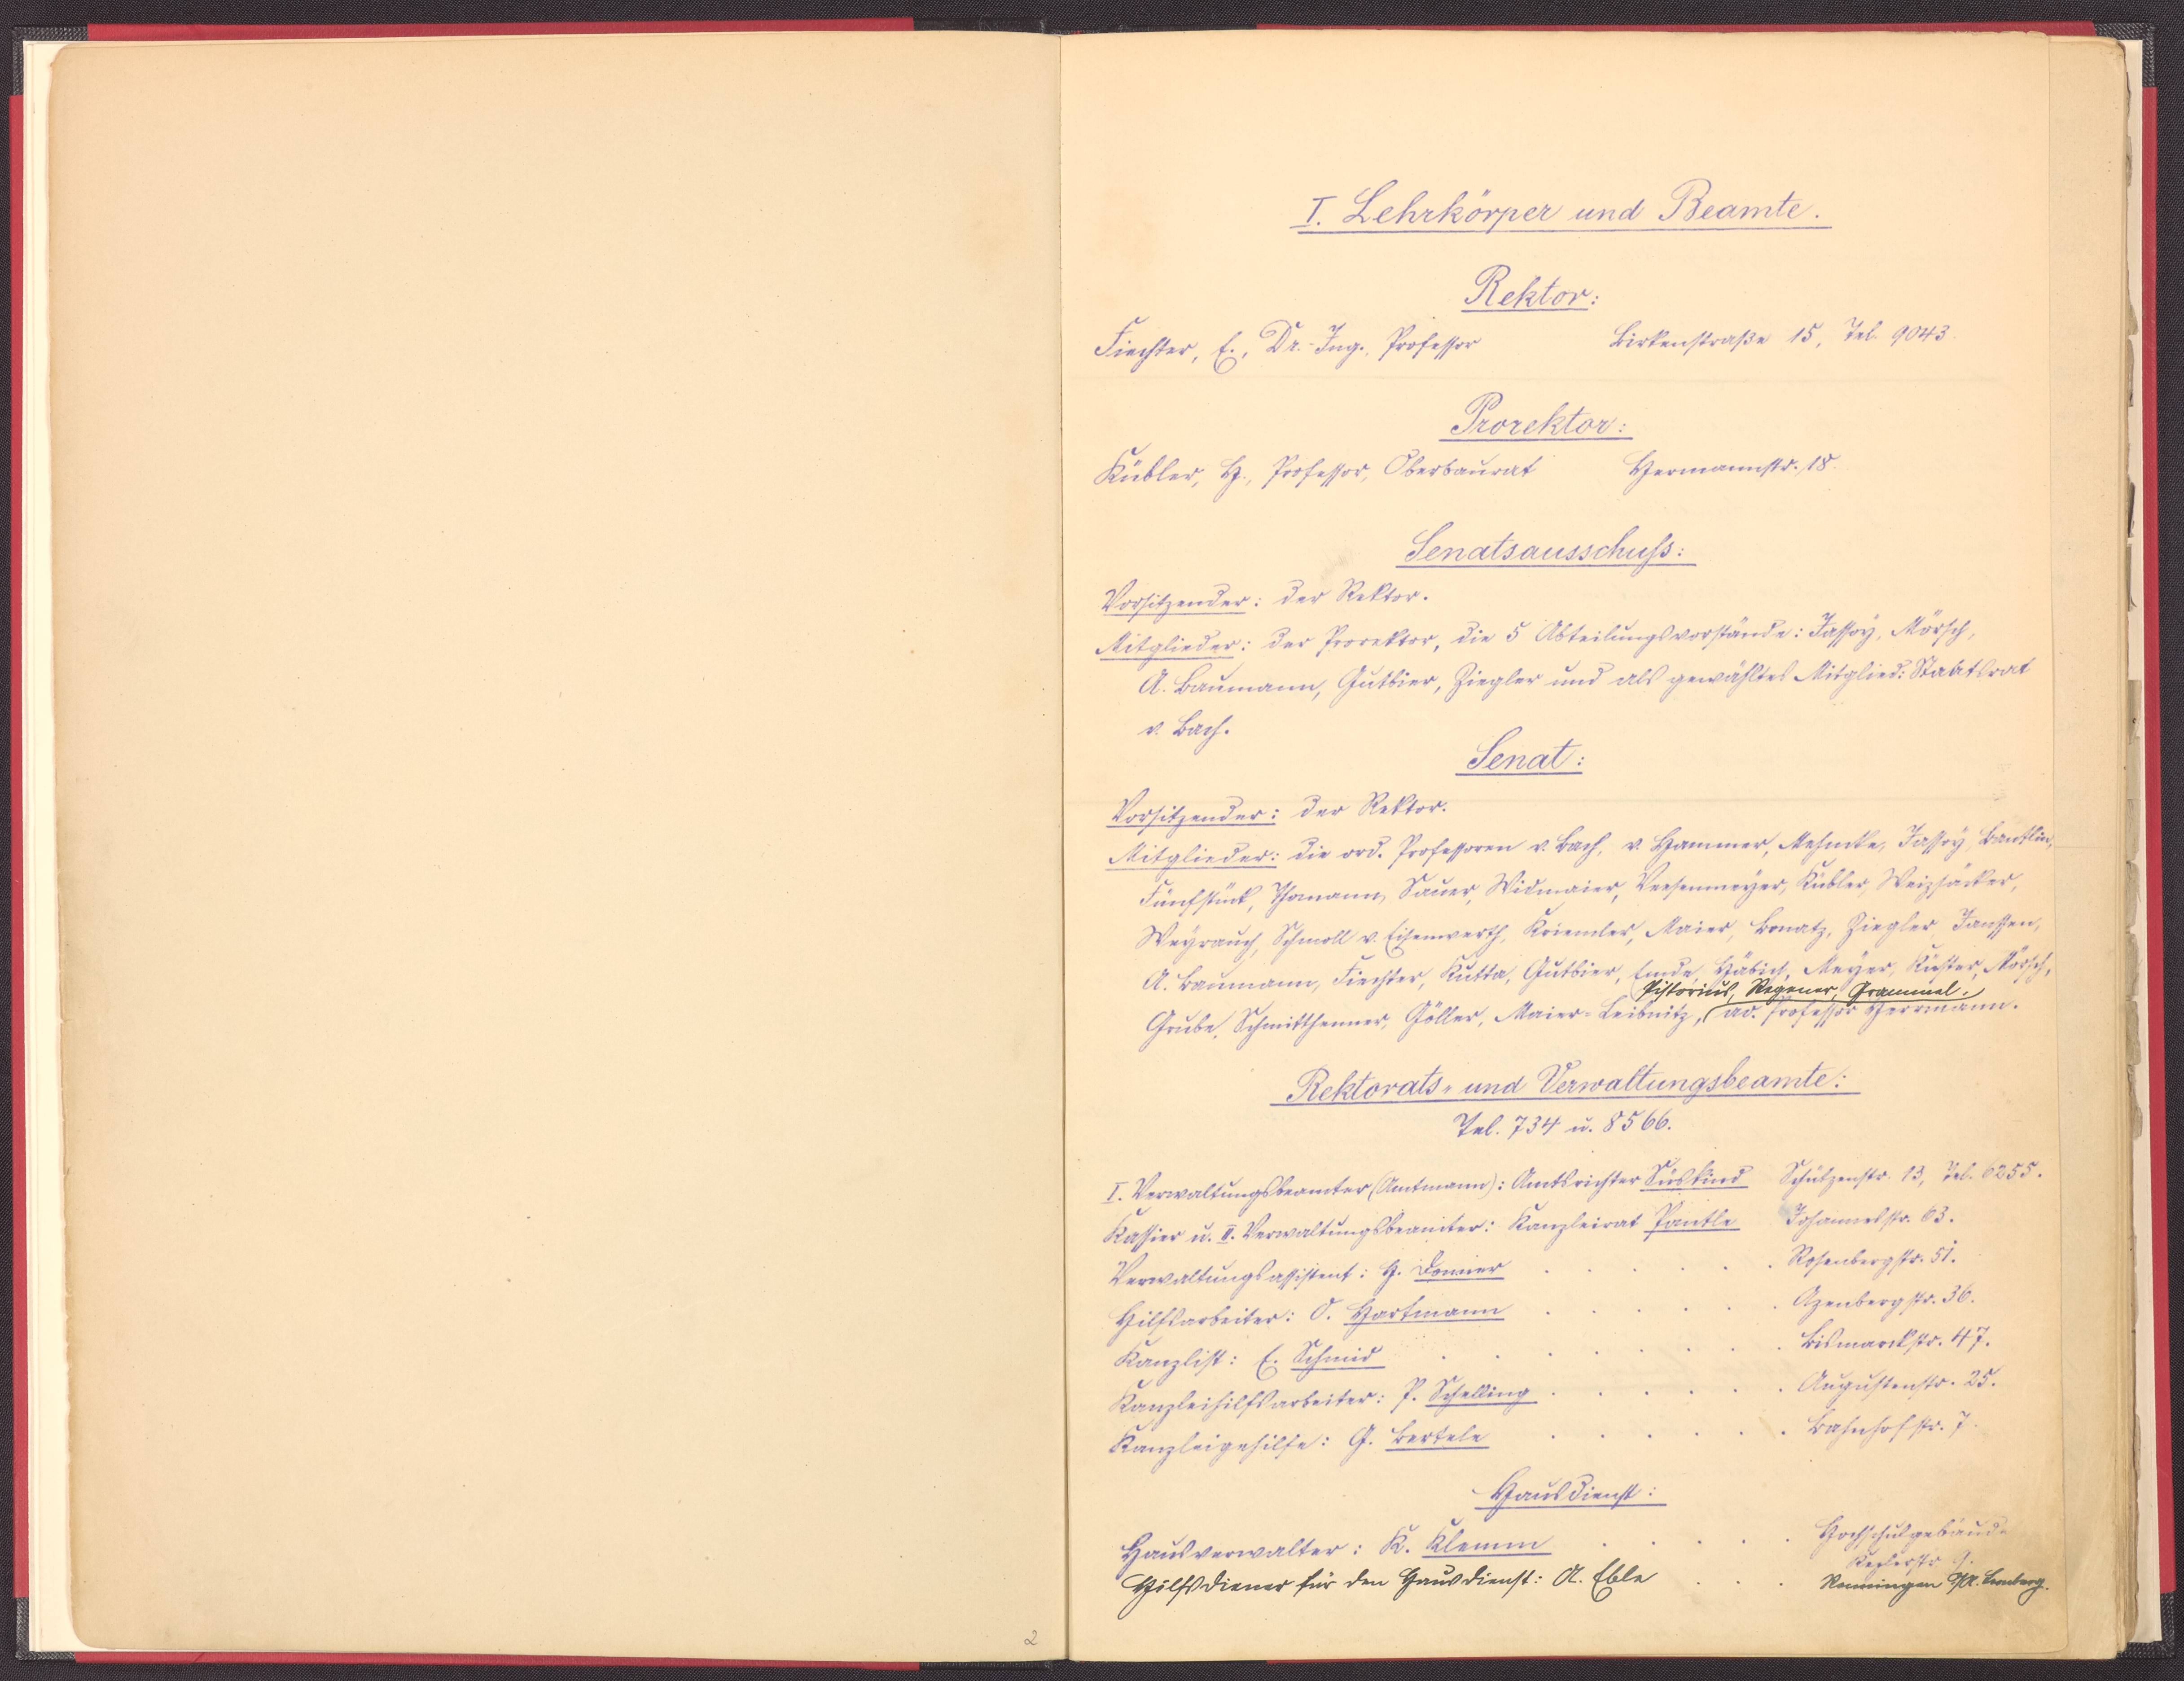 I. Lehrkörper und Beamte.
Rektor:
Fiechter, E., Dr.-Ing., Professor Birkenstraße 15, Tel. 9043
Prorektor:
Kübler, H., Professor, Oberbaurat Hermannstr. 18.
Senatsausschuß:
Vorsitzender: der Rektor.
Mitglieder: der Prorektor, die 5 Abteilungsvorstände: Jassoy, Mörsch,
A. Baumann, Gutbier, Ziegler und als gewähltes Mitglied: Staatsrat
v. Bach.
Senat:
Vorsitzender: der Rektor.
Mitglieder: die ord. Professoren v. Bach, v. Hammer, Mehmke, Jassoy, Bantlin,
Fünfstück, Thomann, Sauer, Widmaier, Veesenmeyer, Kübler, Weizsäcker,
Weyrauch, Schmoll v. Eisenwerth, Kriemler, Maier, Bonatz, Ziegler, Janssen,
A. Baumann, Fiechter, Kutta, Gutbier, Emde, Häbich, Meyer, Küster, Mörsch,
Pistorius, Regener, Grammel.
Grube, Schmitthenner, Göller, Maier-Leibnitz, ao. Professor Herrmann.
Rektorats- und Verwaltungsbeamte:
Tel. 734 u. 8566.
I. Verwaltungsbeamter (Amtmann): Amtsrichter Süskind Schützenstr. 13, Tel. 6255.
Kassier u. II. Verwaltungsbeamter: Kanzleirat Pantle Johannesstr. 63.
Verwaltungsassistent: H. Rosenbergstr. 51.
Hilfsarbeiter: O. Hartmann Azenbergstr. 36.
Kanzlist: E. Schmid Bismarckstr. 47.
Kanzleihilfsarbeiter: P. Schelling Augustenstr. 25.
Kanzleigehilfe: G. Bertele Bahnhofstr. 7.
Hausdienst:
Hausverwalter: K. Klemm Hochschulgebäude
Keplerstr. 9.
Hilfsdiener für den Hausdienst: A. Eble Renningen O/A. Leonberg.
2